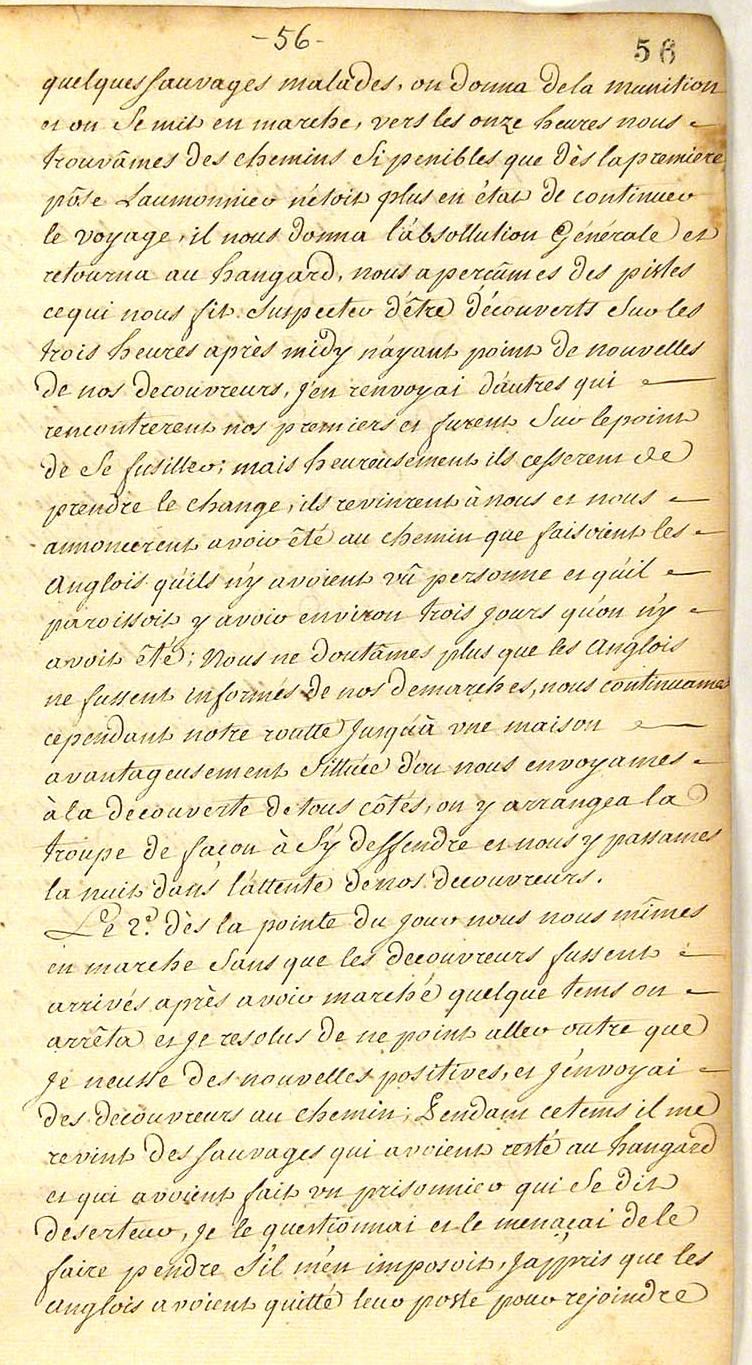 -56-
56
quelques sauvages malades, on donna de la munition
et on se mit en marche, vers les onze heures nous
trouvâmes des chemins si penibles que dès la premiere
pôse Laumonnier n'étoit plus en état de continuer
le voyage, il nous donna l'absollution Générale et
retourna au hangard, nous aperçûmes des pistes
ce qui nous fit suspecter d'être découverts sur les
trois heures après midy n'ayant point de nouvelles
de nos decouvreurs, j'en renvoyai d'autres qui
rencontrerent nos premiers et furent sur le point
de se fusiller; mais heureusement ils cesserent de
prendre le change, ils revinrent à nous et nous
annoncerent avoir êté au chemin que faisoient les
Anglois qu'ils n'y avoient vû personne et qu'il
paroissoit y avoir environ trois jours qu'on n'y
avoit été; Nous ne doutâmes plus que les Anglois
ne fussent informés de nos demarches, nous continuames
cependant notre routte jusqu'à vne maison
avantageusement sittuée d'ou nous envoyames
à la decouverte de tous côtés, on y arrangea la
troupe de façon à s'y deffendre et nous y passames
la nuit dans l'attente de nos decouvreurs.
Le 2e. dès la pointe du jour nous nous mîmes
en marche sans que les decouvreurs fussent
arrivés après avoir marché quelque tems on
arrêta et je resolus de ne point aller outre que
je neusse des nouvelles positives, et j'envoyai
des decouvreurs au chemin; Pendant ce tems il me
revint des sauvages qui avoient resté au hangard
et qui avoient fait vn prisonnier qui se dit
deserteur, je le questionnai et le menaçai de le
faire pendre s'il m'en imposoit, J'appris que les
Anglois avoient quitté leur poste pour rejoindre